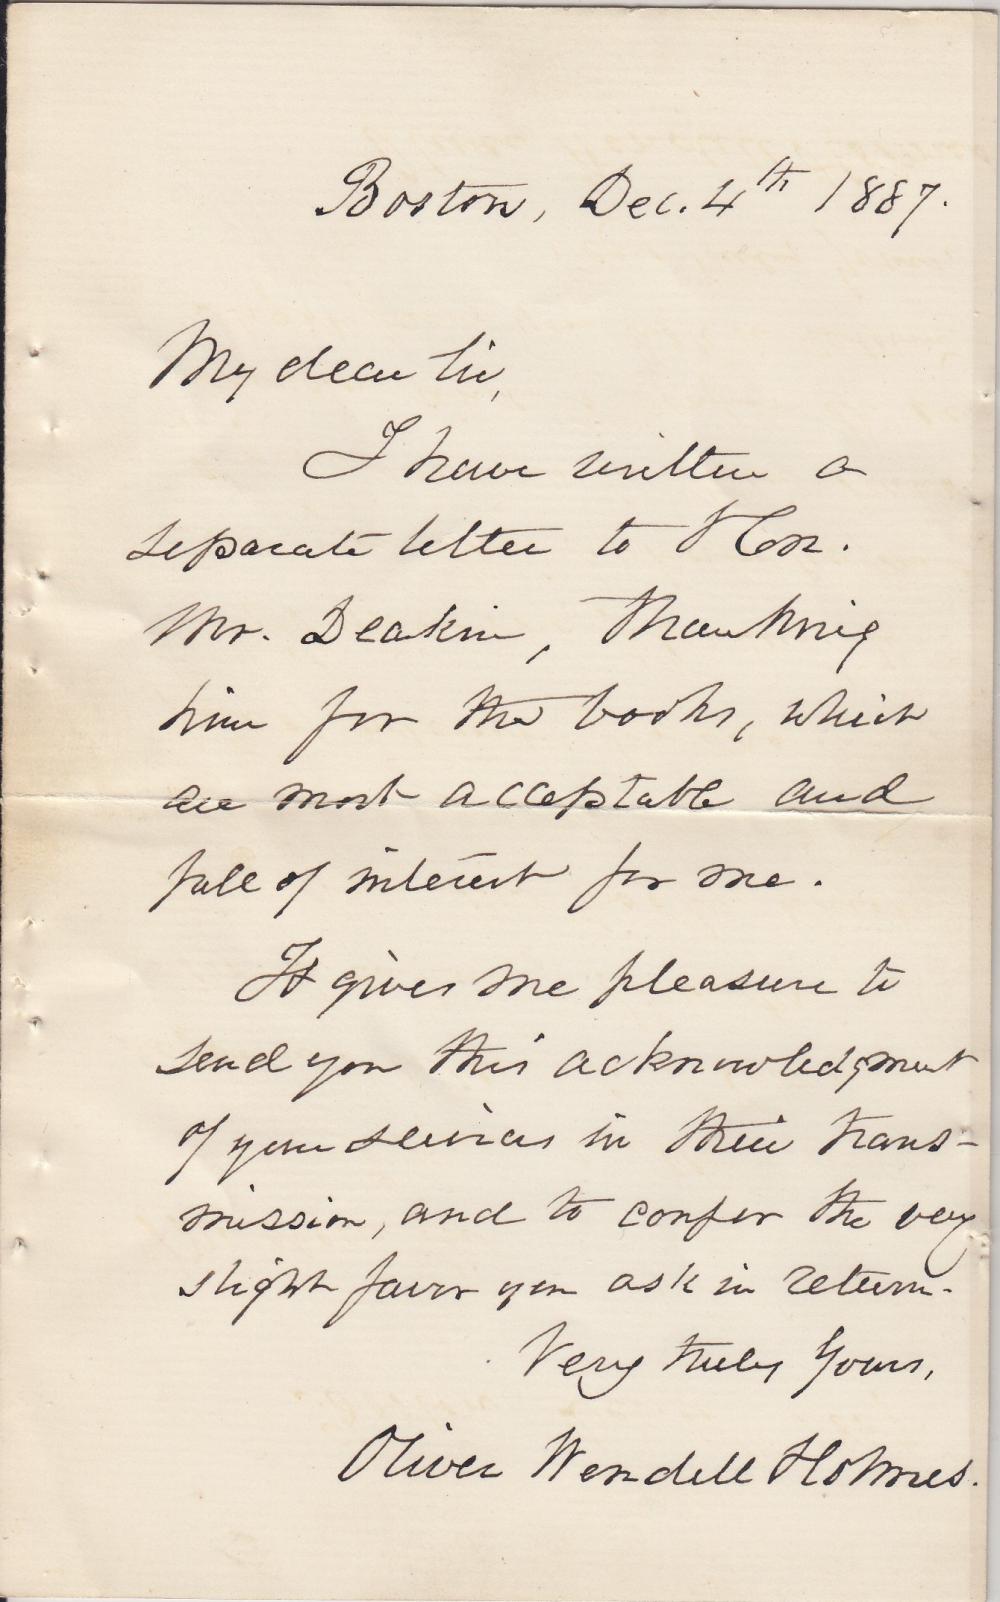 Boston, Dec. 4th 1887.
My dear Sir,
I have written a
separate letter to Hon.
Mr. Deakin, thanking
him for the books, which
are most acceptable and
full of interest for me.
It gives me pleasure to
send you this acknowledgment
of your services in their trans-
mission, and to confer the very
slight favor you ask in return.
Very truly Yours,
Oliver Wendell Holmes.